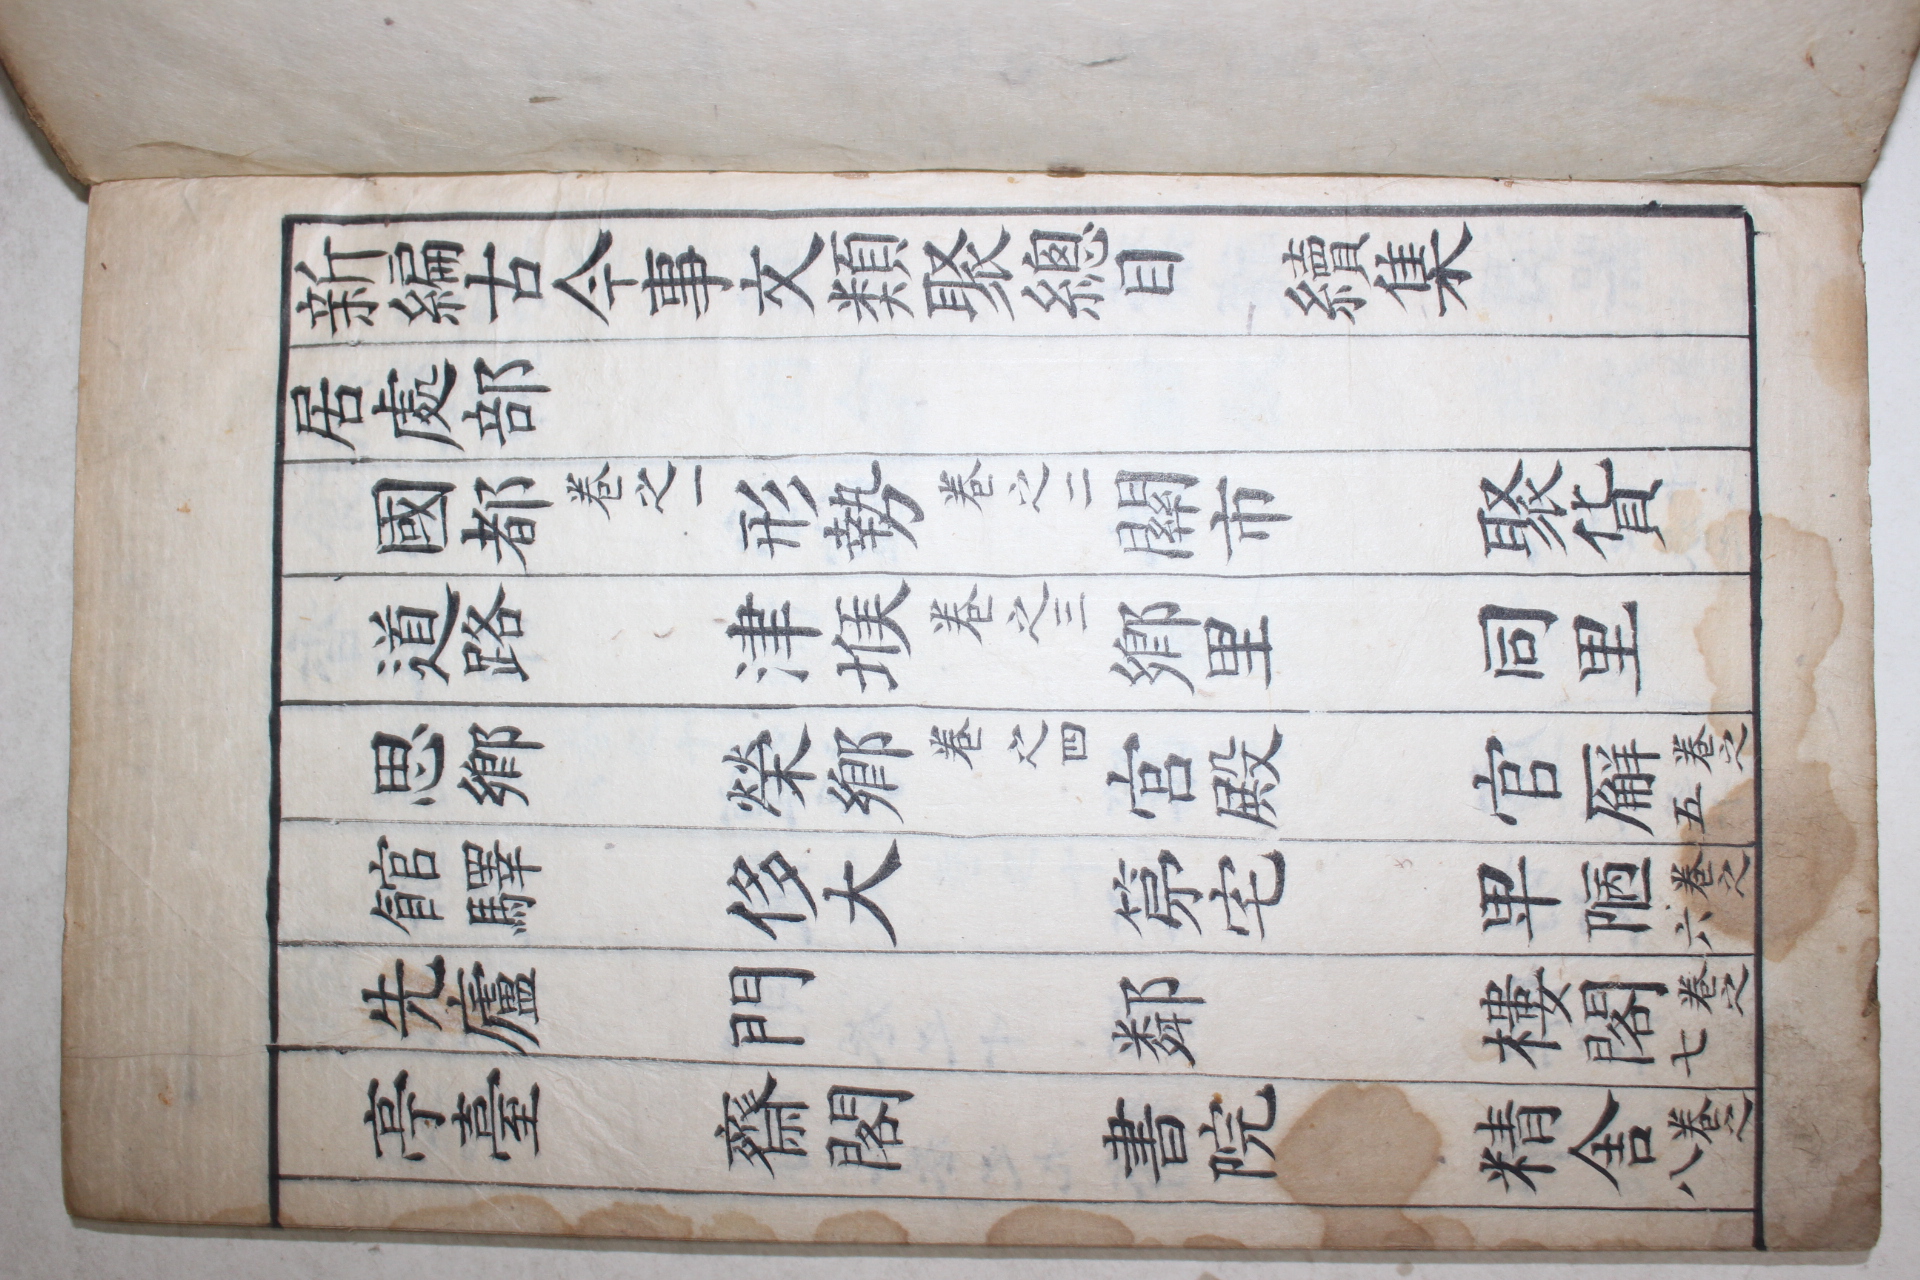 新編古今事文類聚總目 續集
居處部
國都卷之一 形勢卷之二 關市 聚貨
道路 津堠卷之三 鄉里 同里
思鄉 榮鄉卷之四 宮殿 官廨卷之五
館驛 侈大 第宅 卑陋卷之六
先廬 門 鄰 樓閣卷之七
亭臺 齋閣 書院 精舍卷之八